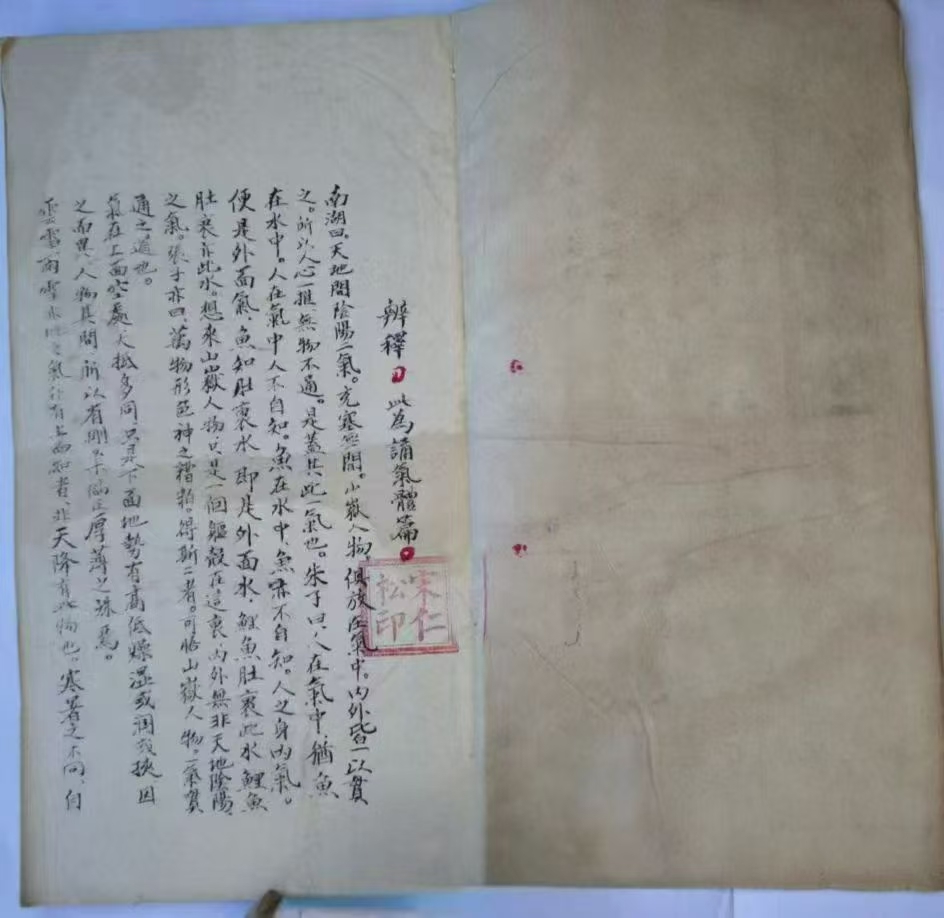 辨釋 此為誦氣體篇。
南湖曰、天地間陰陽一氣。充塞無間。山嶽人物、俱放在氣中。內外皆一以貫
之。所以人心一推、無物不通。是蓋共此一氣也。朱子曰、人在氣中、猶魚
在水中。人在氣中人不自知。魚在水中、魚亦不自知。人之身內氣。
便是外面氣、魚知肚裏水、即是外面水、鯉魚肚裏此水、鯉魚
肚裏亦此水。想來山嶽人物、只是一個軀殼在這裏、內外無非天地陰陽
之氣。張子亦曰、萬物形色神之糟粕。得斯二者。可貽山嶽人物。一氣貫
通之道也。
氣在上面空處、大抵多同、只是下面地勢有高低燥濕或濶或挾因
之而異、人物其間、所以有剛柔偏正厚薄之殊焉。
雲雷雨雪、氣 有 者、非天降有此物也。寒暑之不同、自
宋仁
松印